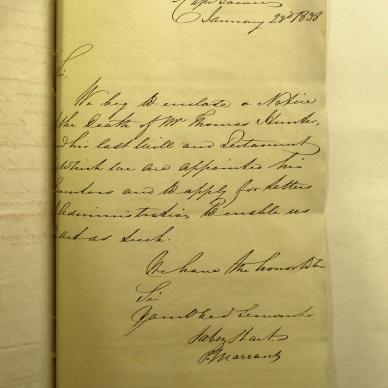 Cape Town
January 23d 1838
Sir,
We beg to enclose a Notice
the Death of Mr Thomas Hunter,
& his last Will and Testament
which we are appointed his
cutors and to apply for Letters
Administration to enable us
act as such.
We have the honor to be
Sir
Your Obed Servants
Jabez Hart
P Marrant